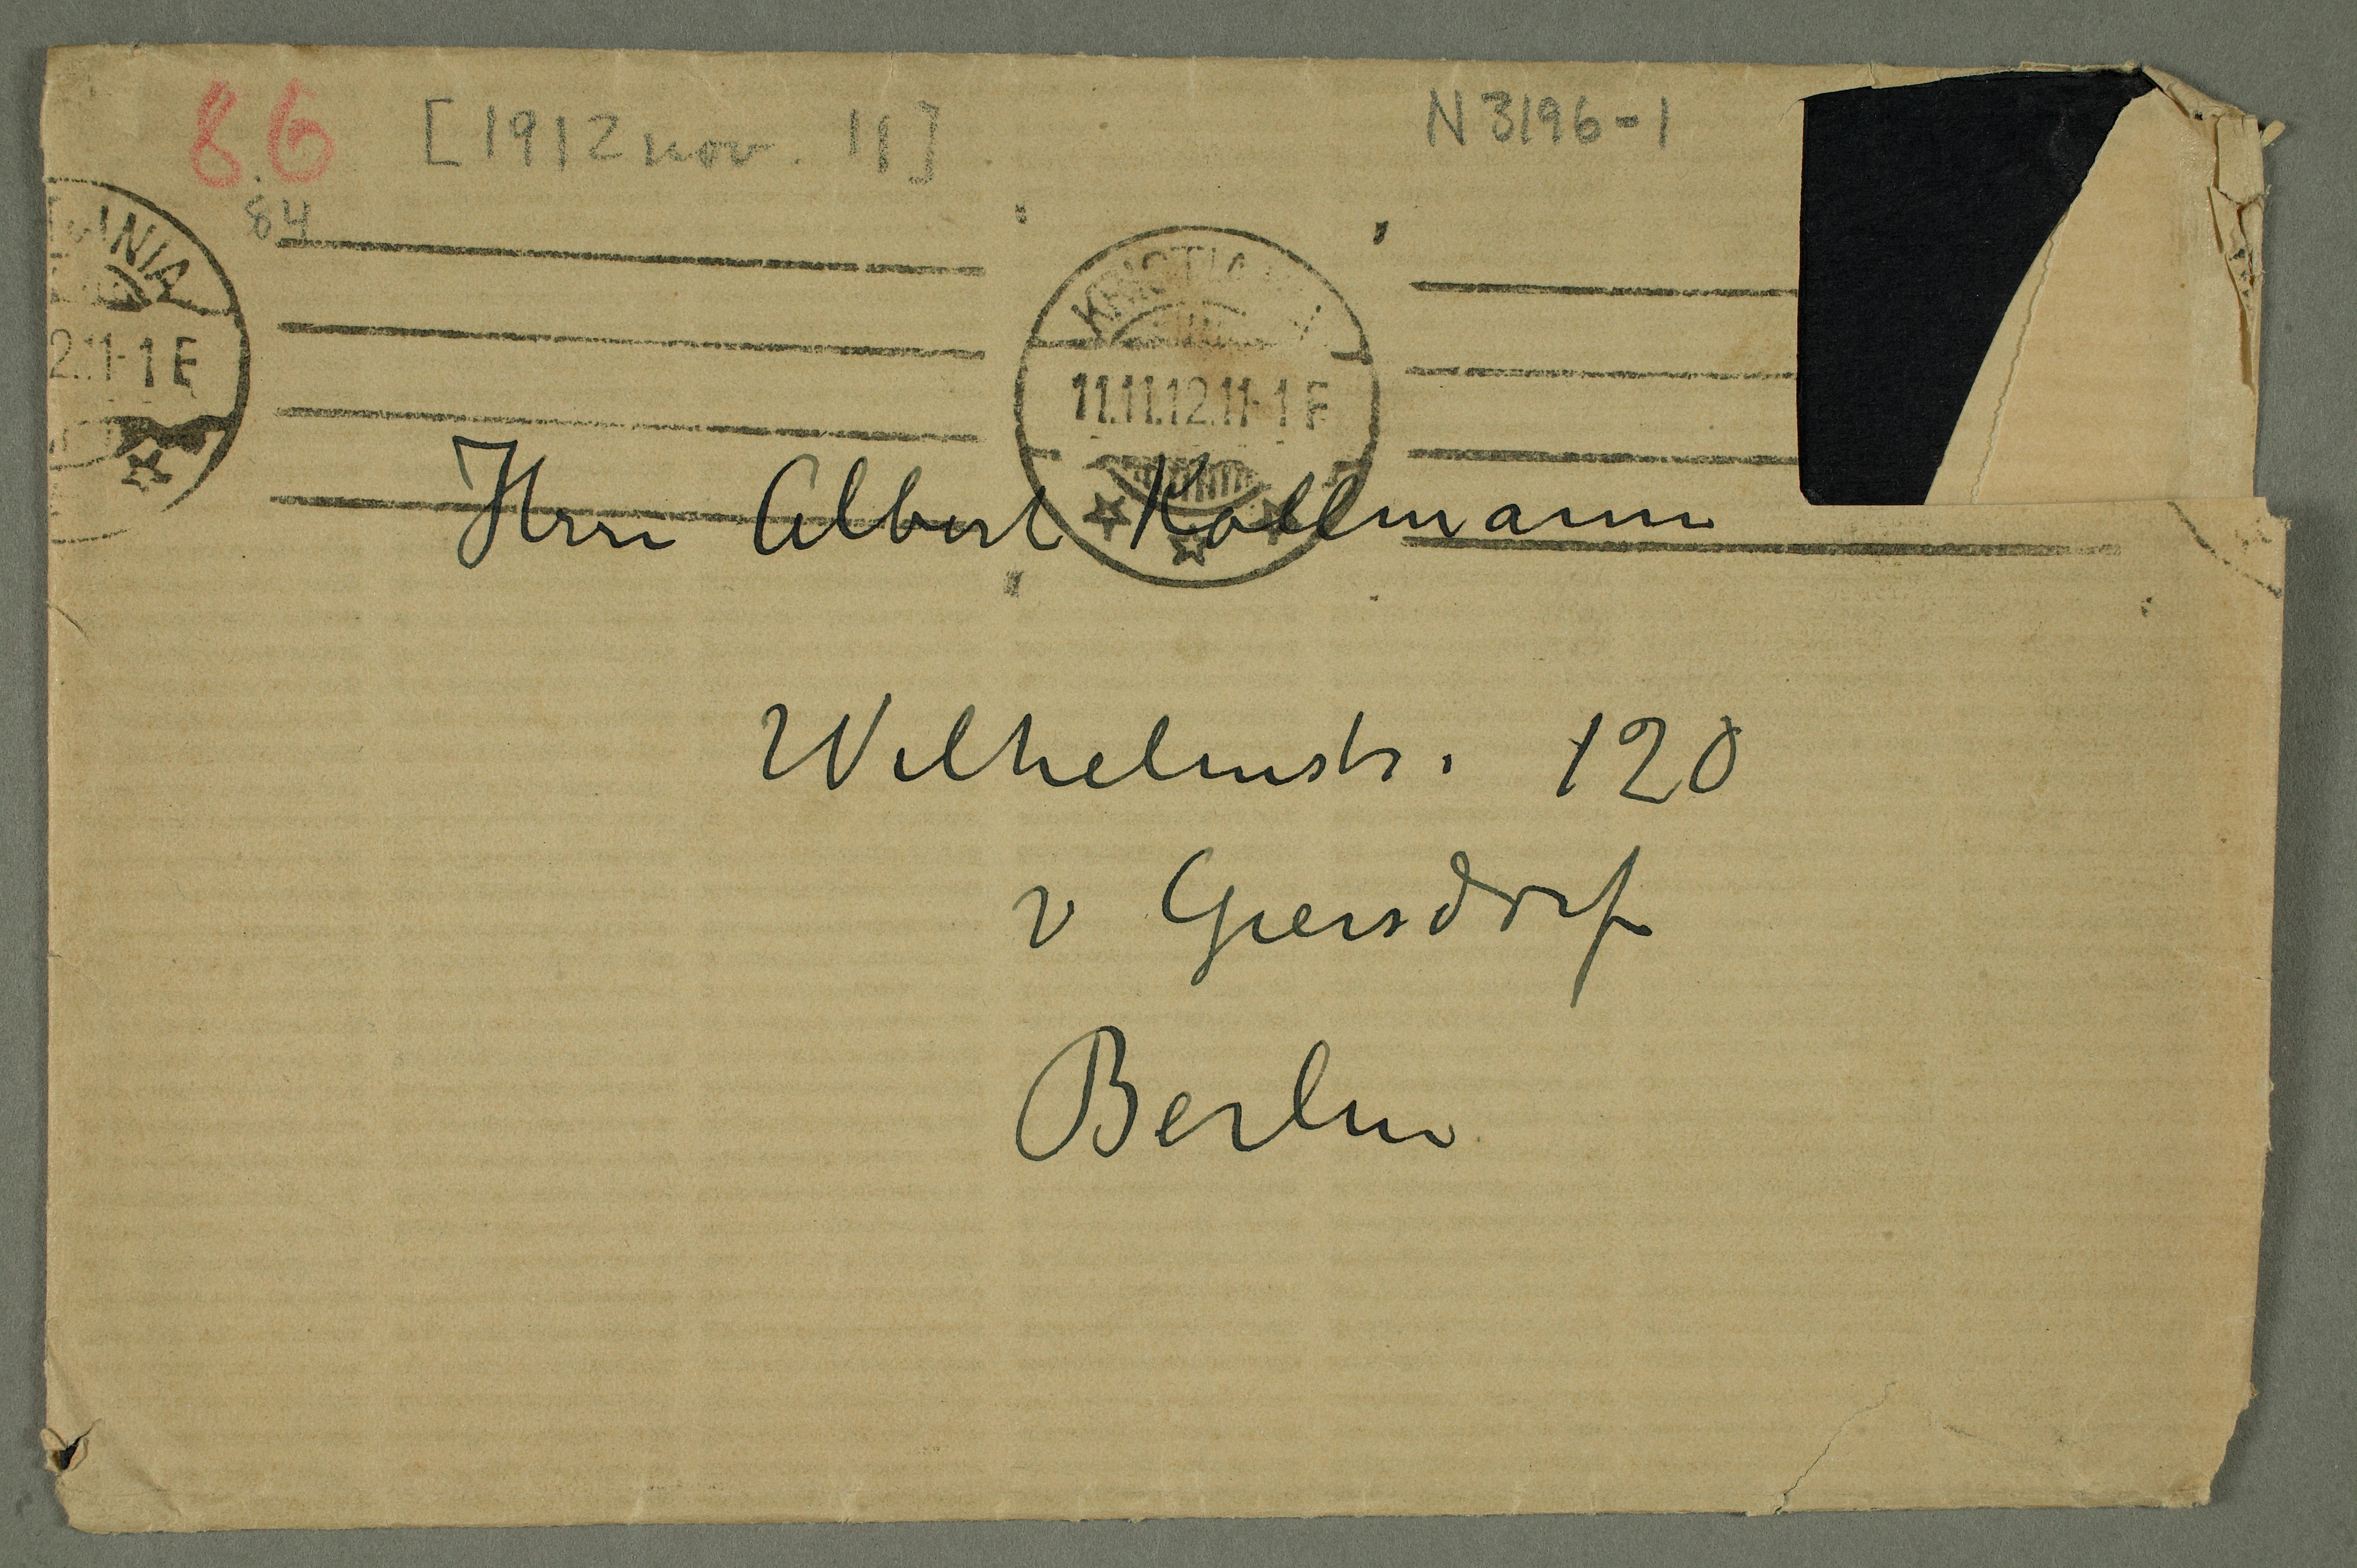 86 [1912 nov. 11] N 3196-1
84
KRISTIANIA
11.11.12.11-1 F
2.11-1 F
Herrn Albert Kollmann
Wilhelmstr. 120
v Giersdorf
Berlin